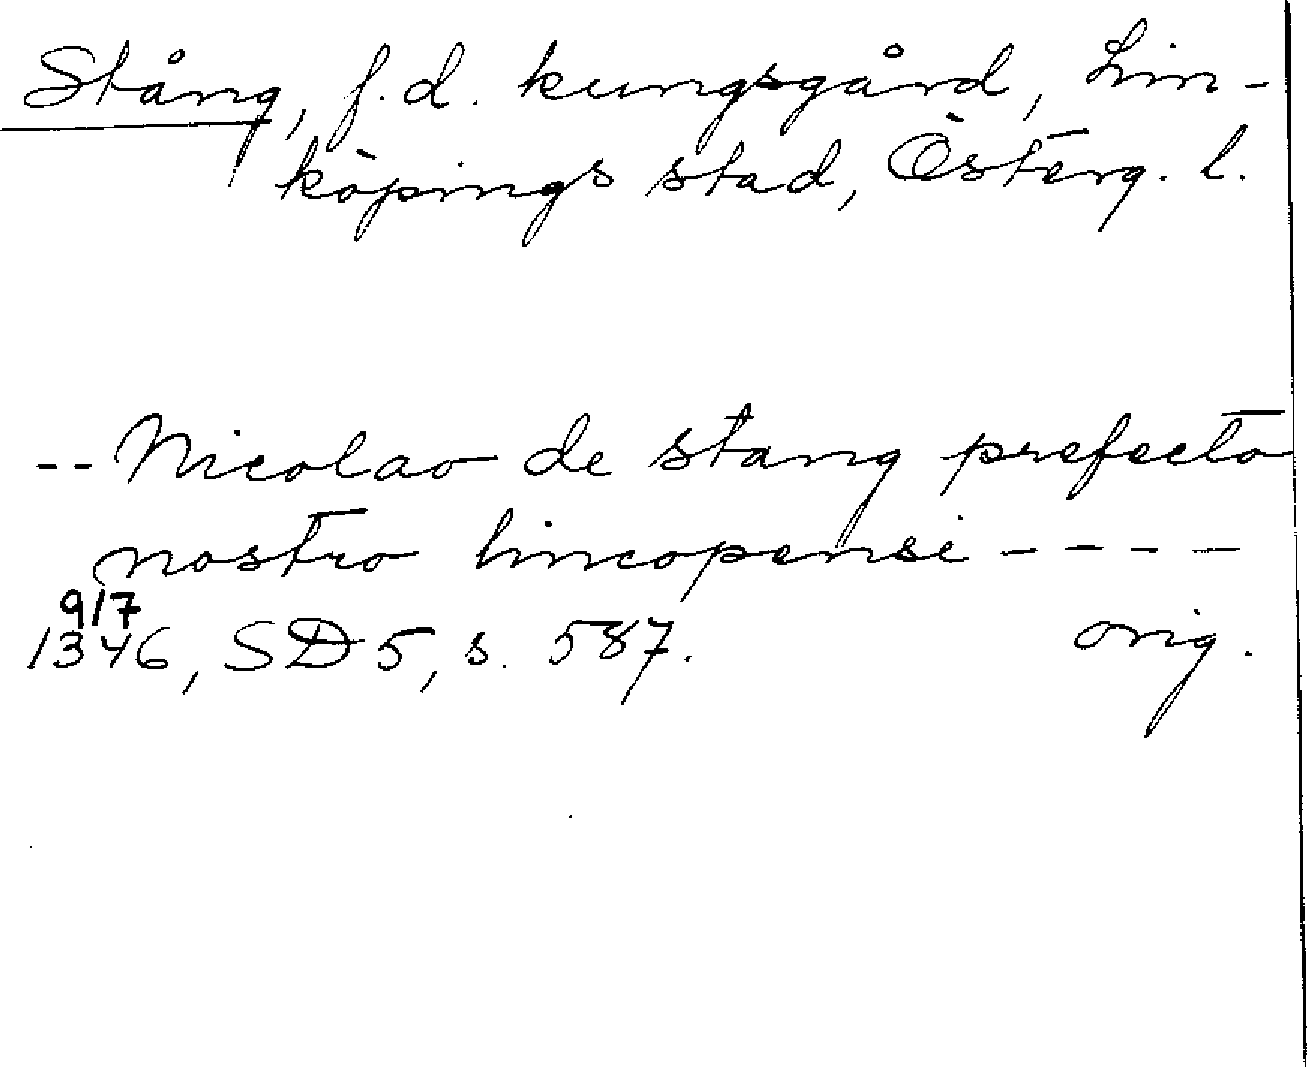 Stång, f.d. kungsgård, Lin-
köpings stad, Österg. l.
-- Nicolao de stang prefecto
nostro lincopensi ----
9/7
1346, SD 5, s. 587. orig.